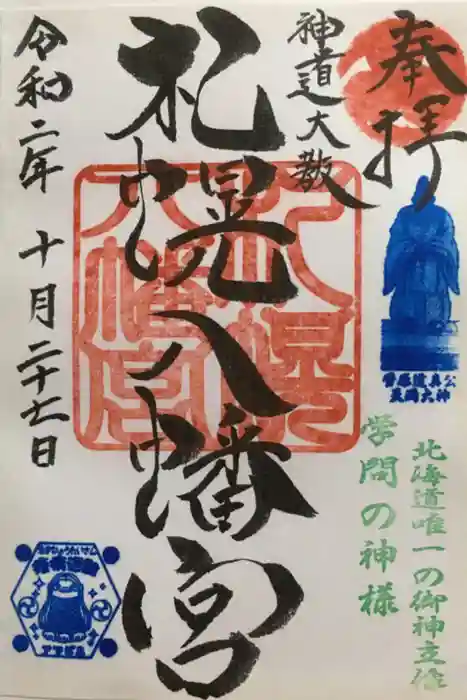 奉拝
神道大教
札幌八幡宮
令和二年 十月二十七日
札幌八幡宮
菅原道真公
天満大神
北海道唯一の御神立像
学問の神様